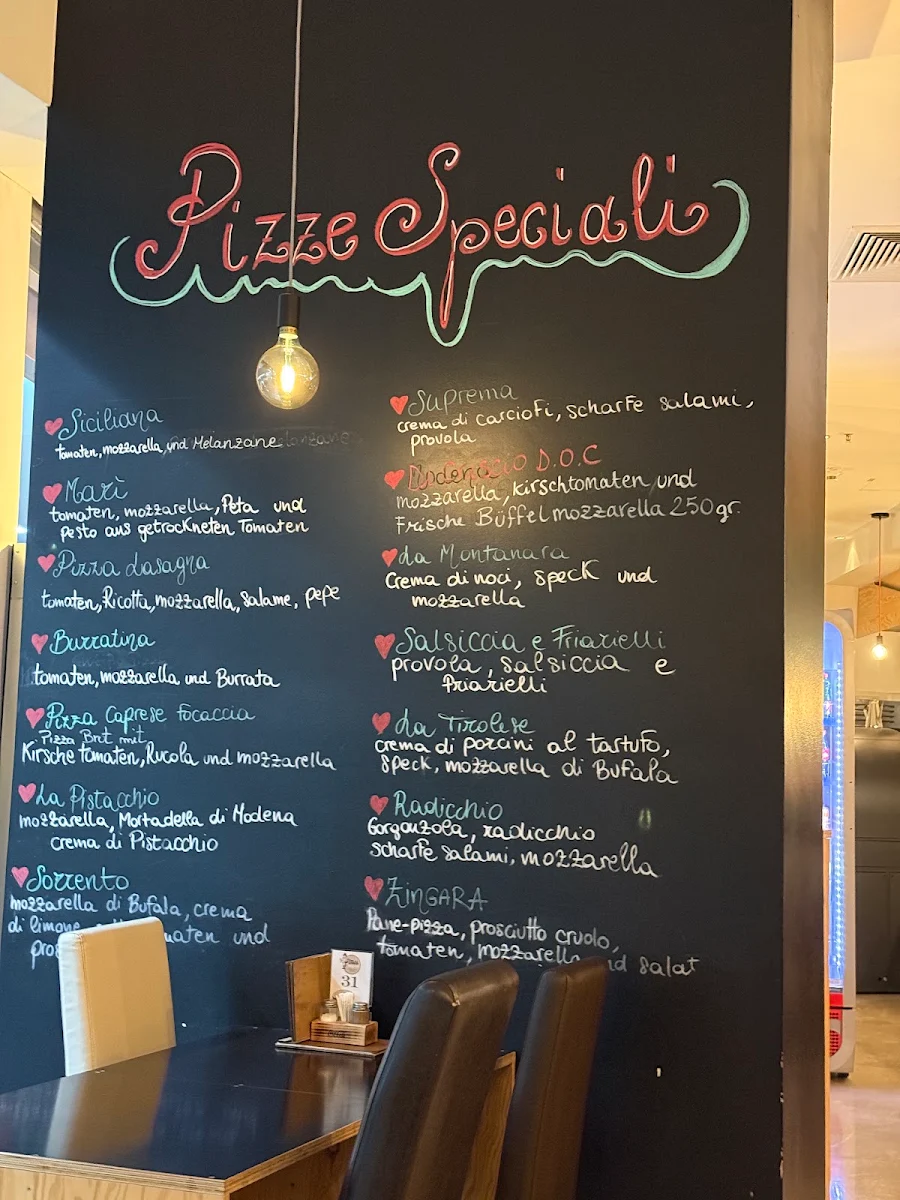 Pizze Speciali
Siciliana
tomaten, mozzarella, und Melanzane
Marì
tomaten, mozzarella, Feta und
Pesto aus getrockneten Tomaten
Pizza Lasagna
tomaten, Ricotta, mozzarella, Salame, pepe
Burratina
tomaten, mozzarella und Burrata
Pizza Caprese Focaccia
Pizza Brot mit
Kirsche tomaten, Rucola und mozzarella
La Pistacchio
mozzarella, Mortadella di Modena
crema di Pistacchio
Sorrento
mozzarella di Bufala, crema
di limone und
Suprema
crema di carciofi, scharfe salami,
provola
D.O.C
mozzarella, kirschtomaten und
Frische Büffelmozzarella 250gr.
La Montanara
Crema di noci, speck und
mozzarella
Salsiccia e Friarielli
provola, salsiccia e
friarielli
La Tirolese
crema di porcini al tartufo,
speck, mozzarella di Bufala
Radicchio
Gorgonzola, radicchio
scharfe salami, mozzarella
ZINGARA
Pane-pizza, prosciutto cruolo,
tomaten, mozzarella salat
31